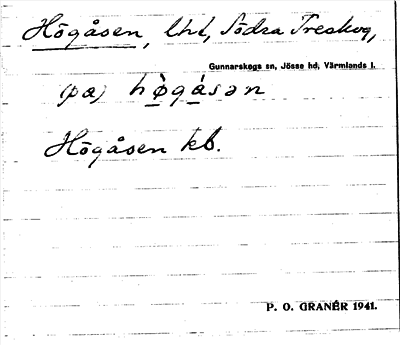 Högåsen, lhl, Södra Treskog,
Gunnarskogs sn, Jösse hd, Värmlands l.
(på) hø̀gåsən
Högåsen kb.
P. O. GRANÉR 1941.